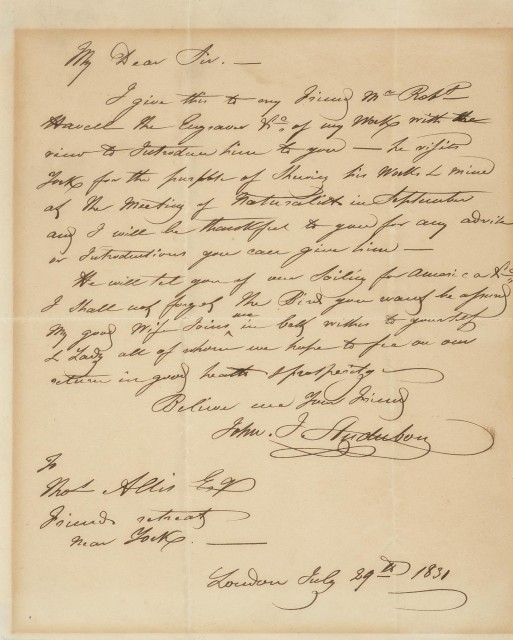 My Dear Sir. —
I give this to my friend Mr. Robt
Havell the Engraver &c. of my Work with the
view to Introduce him to you — he visits
York for the purpose of Shewing his Works & mine
at the Meeting of Naturalists in September
and I will be thankful to you for any advise
or Introductions you can give him —
He will tell you of our Sailing for America &c.
I shall not forget the Birds you want be assured
My good Wife Joins me in best wishes to yourself
& Lady all of whom we hope to see on our
return in good health & prosperity
Believe me Your Friend
John. J Audubon
To
Thos Allis Esqr
Friends retreat
near York. —
London July 29th 1831